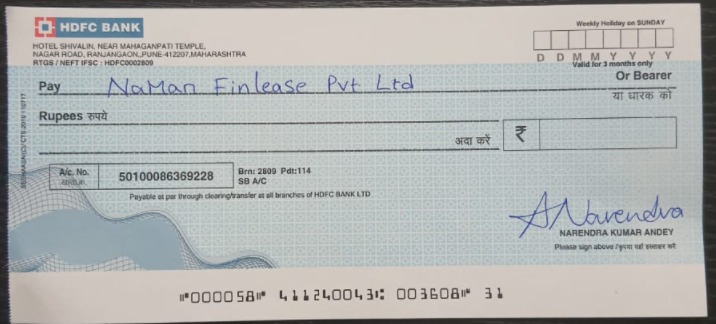 HDFC BANK
Weekly Holiday on SUNDAY
HOTEL SHIVALIN, NEAR MAHAGANPATI TEMPLE,
NAGAR ROAD, RANJANGAON,,PUNE-412207,MAHARASHTRA
RTGS / NEFT IFSC : HDFC0002809
D D M M Y Y Y Y
Valid for 3 months only
Pay NaMan Finlease Pvt Ltd Or Bearer
या धारक को
Rupees रुपये
अदा करें ₹
A/c. No. 50100086369228 Brn: 2809 Pdt:114
SB A/C
Payable at par through clearing/transfer at all branches of HDFC BANK LTD
A Narendra
NARENDRA KUMAR ANDEY
Please sign above /
⑈000058⑈ 411240043⑆ 003608⑈ 31